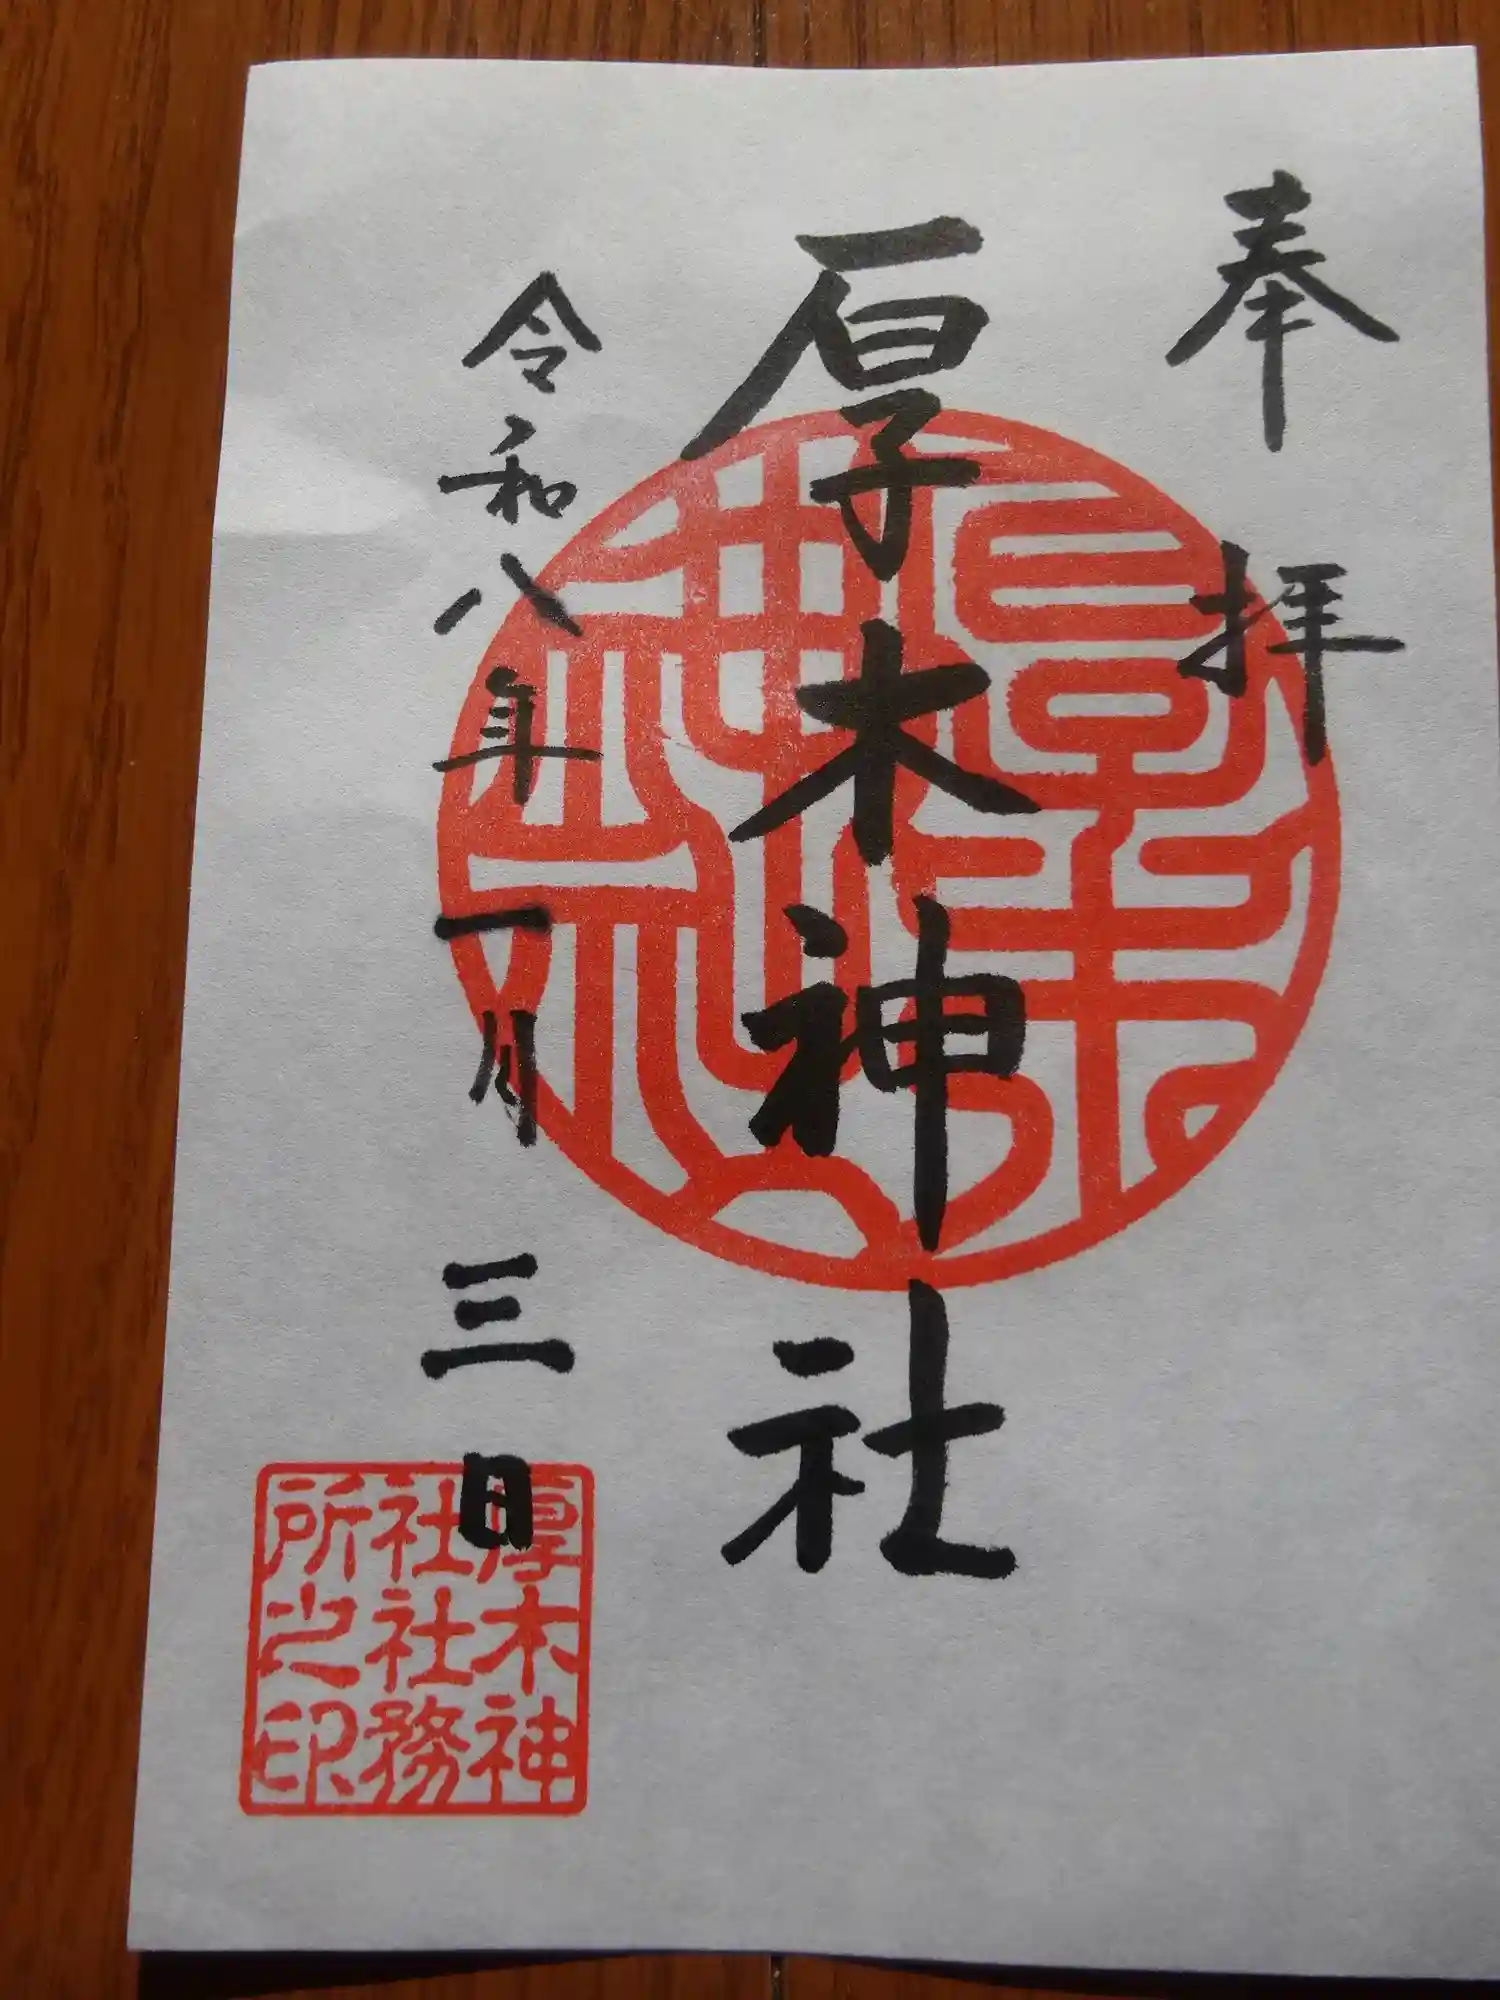 奉拝
厚木神社
令和八年一月三日
厚木神
社社務
所之印